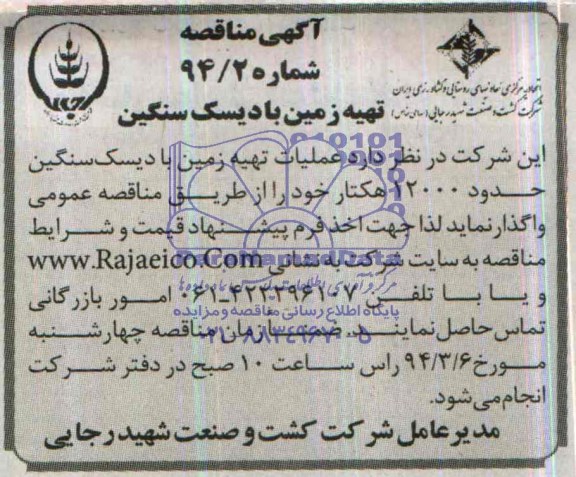 آگهی مناقصه
شماره ۹۴/۲
تهیه زمین با دیسک سنگین
اتحادیه مرکزی تعاونیهای روستایی و کشاورزی ایران
شرکت کشت و صنعت شهید رجایی (سهامی خاص)
این شرکت در نظر دارد عملیات تهیه زمین با دیسک سنگین
حدود ۱۲۰۰۰ هکتار خود را از طریق مناقصه عمومی
واگذار نماید لذا جهت اخذ فرم پیشنهاد قیمت و شرایط
مناقصه به سایت شرکت به نشانی www.Rajaeico.Com
و یا با تلفن ۴۲۲۳۹۶۱۰۷-۰۶۱ امور بازرگانی
پایگاه اطلاع رسانی مناقصه و مزایده
تماس حاصل نمایند. ضمنا زمان مناقصه چهارشنبه
۰۲۱-۸۸۳۴۹۶۷۰-۵
مورخ ۹۴/۳/۶ راس ساعت ۱۰ صبح در دفتر شرکت
انجام می شود.
مدیرعامل شرکت کشت و صنعت شهید رجایی